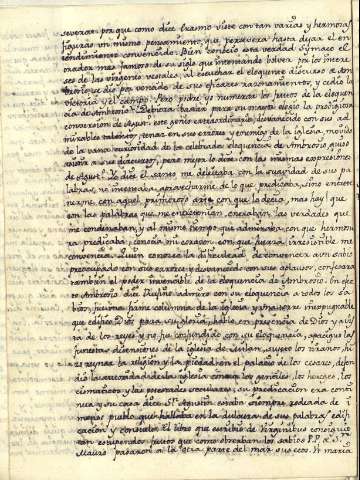 severar: por que como dice Erasmo viste con tan varias y hermosas
figuras un mismo pensamiento, que persevera hasta dejar el en-
tendimiento convencido. Bien conocio esta verdad Symaco el
orador mas famoso de su siglo que intentando bolver por los intere-
ses de las virgenes vestales, al escuchar el eloquente discurso de Am-
brosio se dio por vencido de sus eficaces razonamientos, y cedio la
victoria y el campo. Pero sobre todo los frutos de la eloquen-
cia de Ambrosio
conversion de Agustin este genio extraordinario, desvanecido con sus ad-
mirables talentos, tenaz en sus errores y enemigo de la iglesia, movido
de la vana curiosidad de la celebrada eloquencia de Ambrosio quiso
asistir a sus discursos, pero mejor lo dire con las mismas expresiones
de Agustin. Yo dice el santo me deleitaba con la suavidad de sus pa-
labras, no intentaba aprovecharme de lo que predicaba, sino entrete-
nerme con aquel primoroso arte con que lo decia, mas hay que
con las palabras que me entretenian, entraban las verdades que
me condenaban, y al mismo tiempo que admiraba con que hermosu-
ra predicaba, conocia mi corazon con que fuerza irresistible me
convencia. Quien conosca la dificultad de convencer a un sabio
preocupado con sus errores y desvanecido con sus aplausos, confesara
tambien el poder invencible de la eloquencia de Ambrosio. En efec-
to Ambrosio dice admiro con su eloquencia a todos los sa-
bios, firmisima columna de la iglesia y muro inexpugnable
que edifico Dios para su gloria, hablo en presencia de Dios y a vis-
ta de los reyes y no fue confundido con su eloquencia, apaciguo las
funestas disensiones de la iglesia de Milan, sujeto los tiranos hi-
zo reynar la religion y la piedad en el palacio de los cesares, defen-
dio la autoridad de la iglesia contra los gentiles, los hereges, los
cismaticos, y las potestades seculares; su predicacion era conti-
nua y su casa dice Sn. Agustin estaba siempre rodeada de in-
menso pueblo que hallaba en la dulzura de sus palabras edifi-
cacion y consuelo. El libro que escribio de Virginibus consiguio
tan estupendos frutos que como observaban los sabios P.P. de Sn.
Mauro pasaron a la otra parte del mar sus ecos